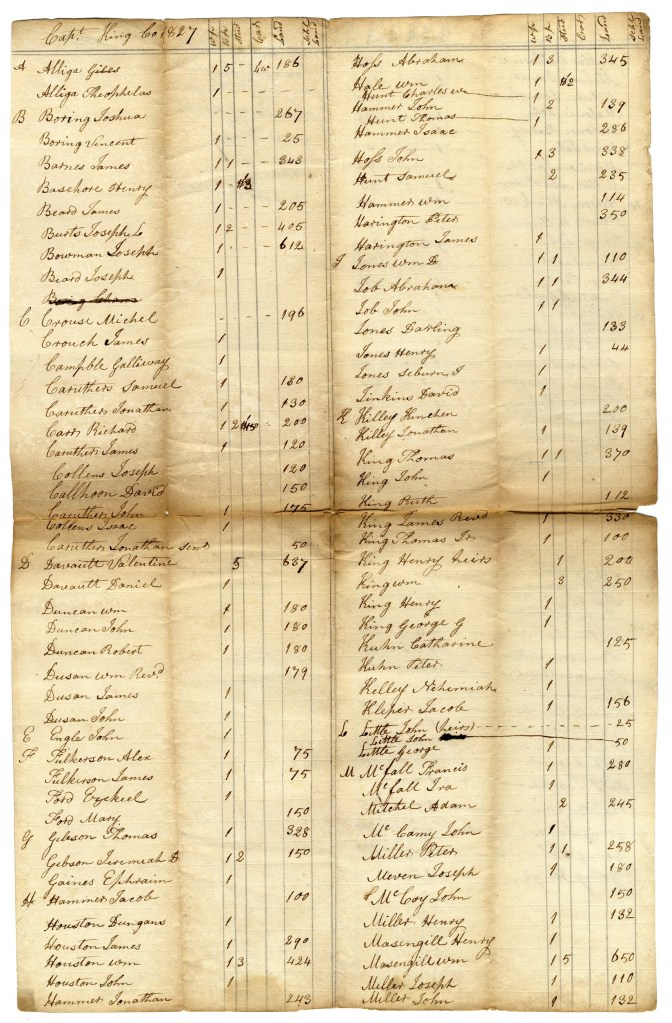 Capt. King Co 1827 Wp Bp Stud Cat Land Schl Land
A Alliga Giles 1 5 - 186
Alliga Theophelas 1 - - - -
B Boring Joshua - - - - 267
Boring Vincent 1 - - - 25
Barnes James 1 1 - - 343
Bashore Henry 1 -
Beard James 1 - - - 205
Burts Joseph L 1 2 - - 405
Bowman Joseph 1 - - - 612
Beard Joseph 1
C Crouse Michel - - - 196
Crouch James 1
Campble Galliway 1
Caruthers Samuel 1 180
Caruthers Jonathan 130
Carr Richard 1 2 200
Caruthers James 1 120
Collens Joseph 120
Callhoon David 150
Caruthers John 1 175
Collens Isaac 1
Caruthers Jonathan senr 50
D Davault Valentine 5 637
Davault Daniel 1
Duncan wm 1 180
Duncan John 1 180
Duncan Robert 1 180
Dusan wm Revd 179
Dusan James 1
Dusan John 1
E Engle John 1
F Fulkerson Alex 1 75
Fulkerson James 1 75
Ford Ezekeel 1
Ford Mary 150
G Gibson Thomas 1 328
Gibson Jeremiah D 1 2 150
Gaines Ephraim 1
H Hammer Jacob 100
Houston Dungans 1
Houston James 1 290
Houston wm 1 3 424
Houston John 1
Hammer Jonathan 243
Wp Bp Stud Cat Land Schl Land
Hoss Abraham 1 3 345
Hale wm 1 H2
Hunt Charles 1
Hammer John 2 139
Hunt Thomas 1
Hammer Isaac 286
Hoss John 1 3 338
Hunt Samuel 2 235
Hammer wm 114
Harington Peter 350
Harington James 1
J Jones wm D 1 1 110
Job Abraham 1 1 344
Job John 1 1
Jones Darling 133
Jones Henry 1 44
Jones Seburn J 1
Jinkins David 1
K Killey Kinchen 200
Killey Jonathan 1 139
King Thomas 1 1 370
King John 1
King Ruth 112
King James Revd 1 330
King Thomas Sr 1 100
King Henry heirs 1 200
King wm 3 250
King Henry 1
King George G 1
Kuhn Catharine 125
Kuhn Peter 1
Kelley Nehemiah 1
Kleper Jacob 1 156
L Little John (heirs) - - - - - 25
Little John 50
Little George 1
M McFall Francis 1 280
McFall Ira 1
Mitchel Adam 2 245
McCamy John 1
Miller Peter 1 1 258
Meven Joseph 1 180
McCoy John 150
Miller Henry 1 132
Masengill Henry 1
Masengill wm 1 5 650
Miller Joseph 1 110
Miller John 1 132